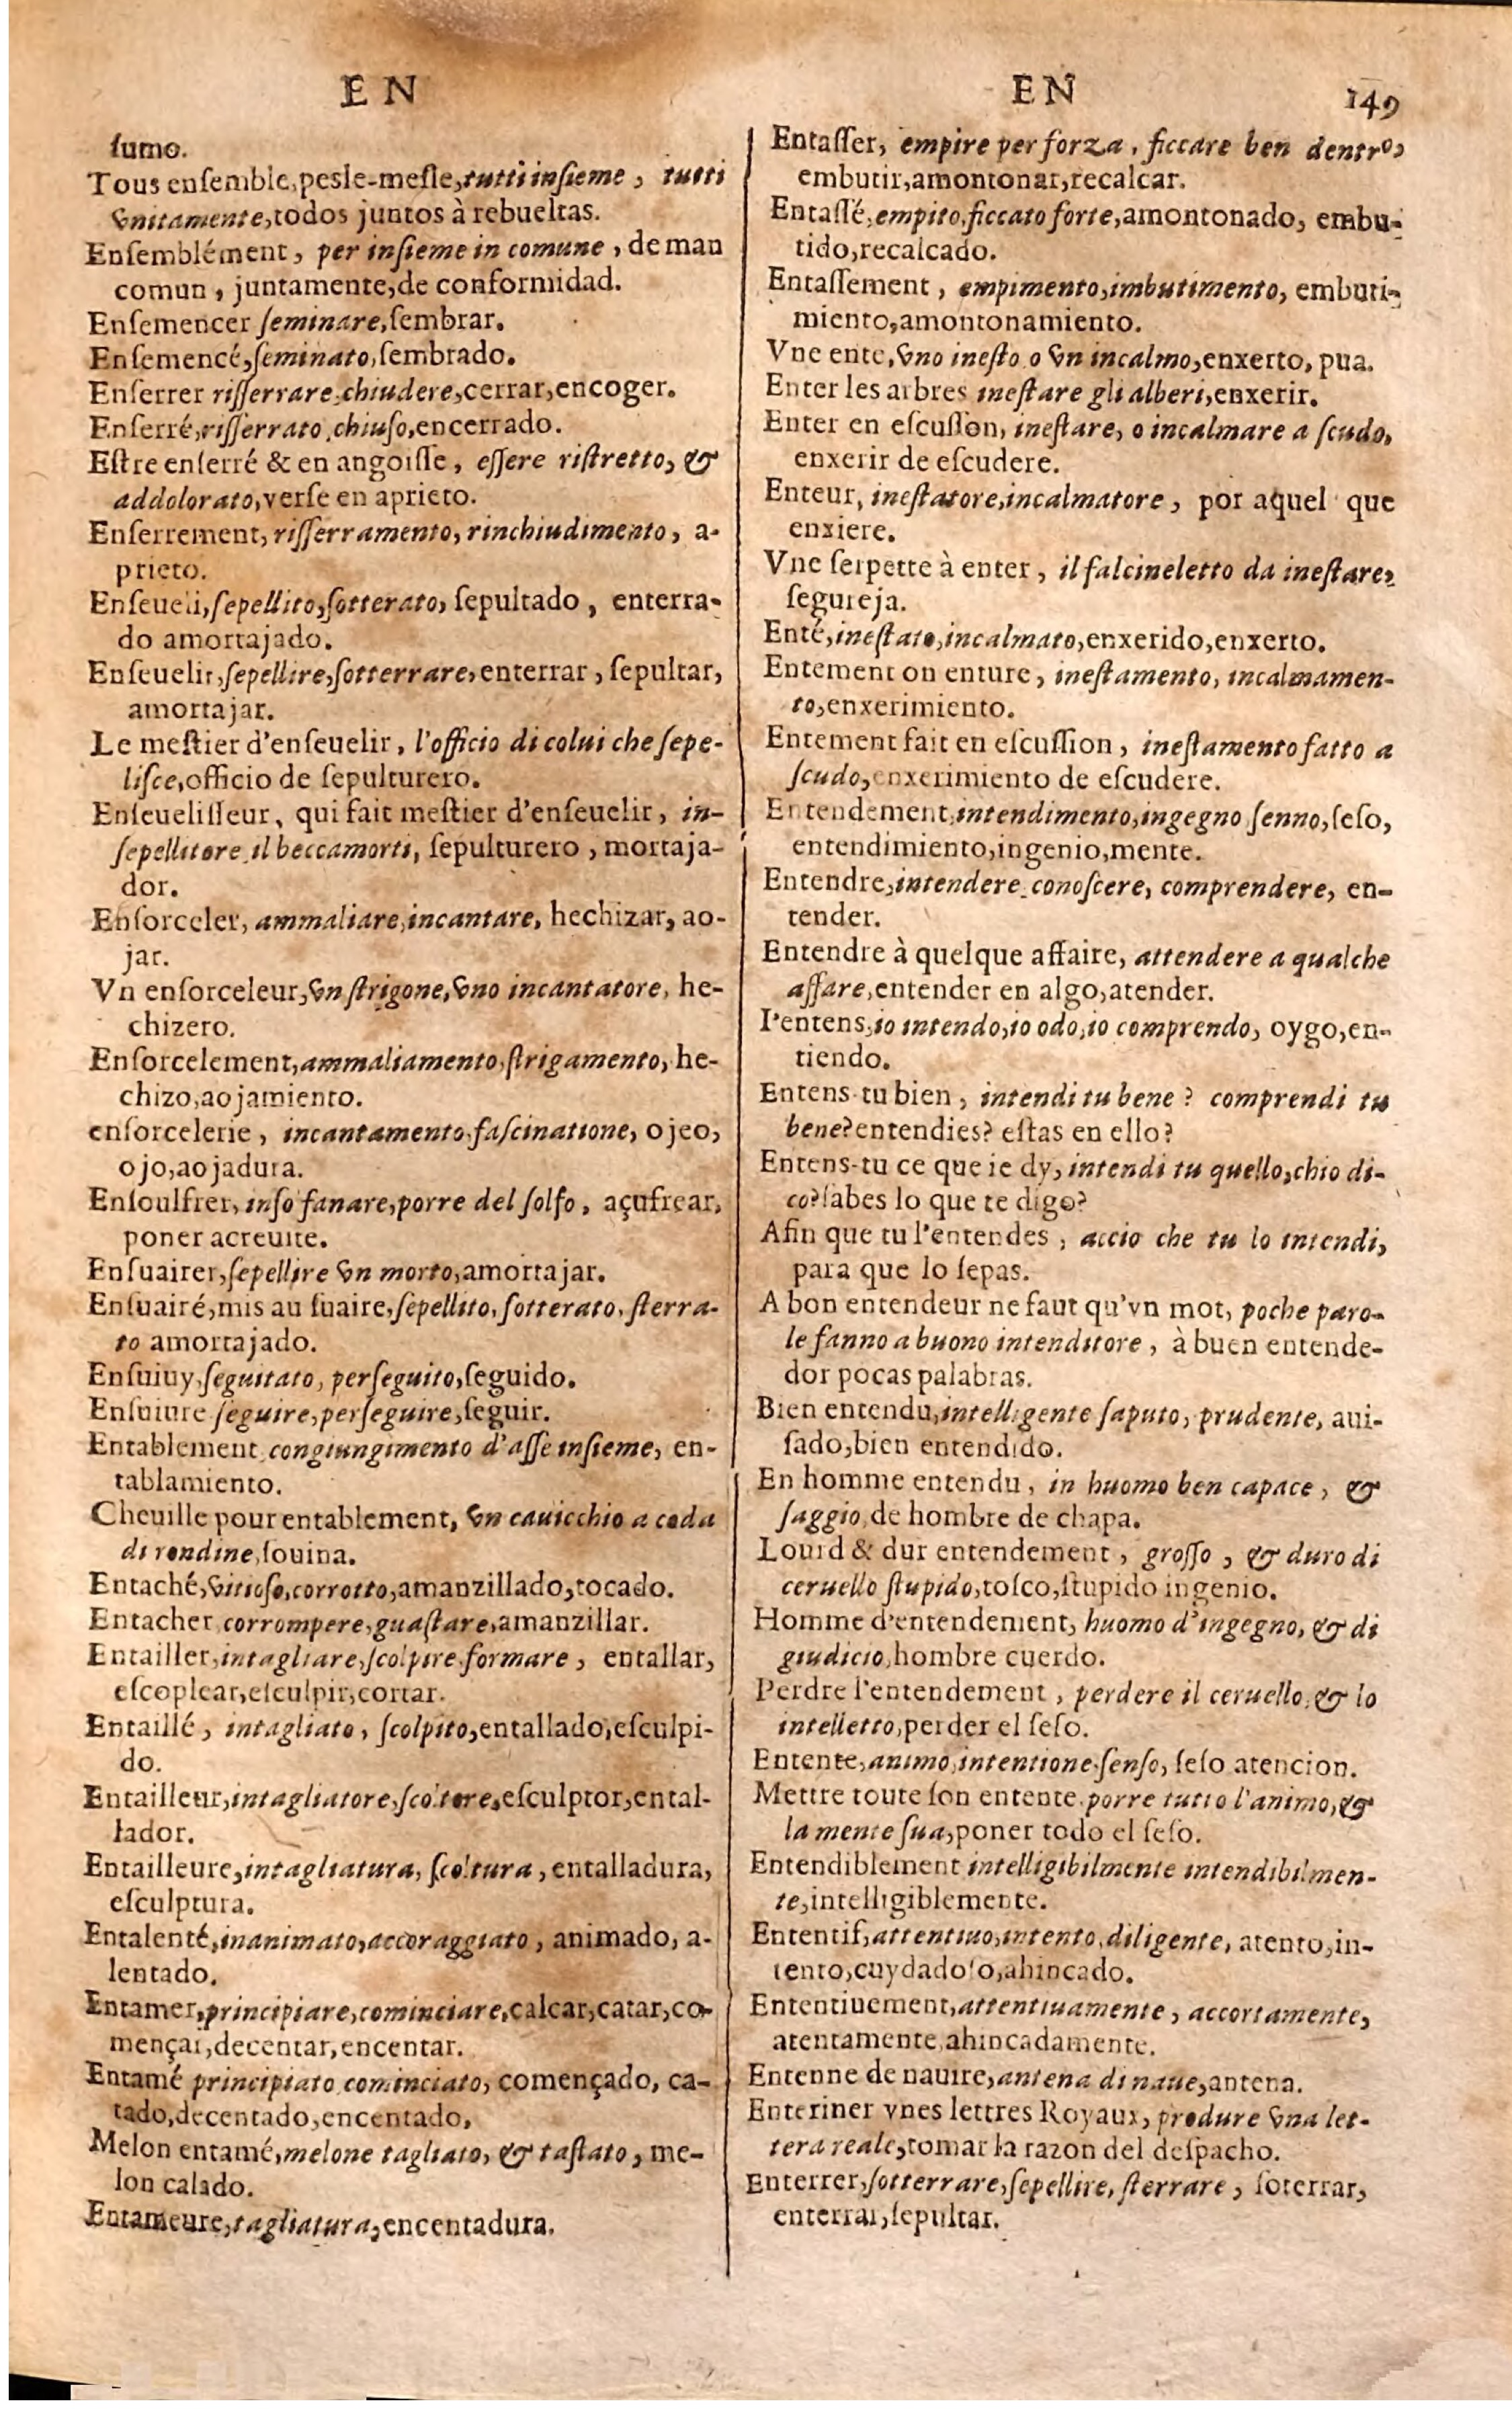 EN
ſumo.
Tous enſemble, peſle-meſle, tutti inſieme, tutti
vnitamente, todos juntos à rebueltas.
Enſemblément, per inſieme in comune, de man
comun, juntamente, de conformidad.
Enſemencer ſeminare, ſembrar.
Enſemencé, ſeminato, ſembrado.
Enſerrer riſſerrare, chiudere, cerrar, encoger.
Enſerré, riſſerrato, chiuſo, encerrado.
Eſtre enſerré & en angoiſſe, eſſere riſtretto, &
addolorato, verſe en aprieto.
Enſerrement, riſſerramento, rinchiudimento, a-
prieto.
Enſeueli, ſepellito, ſotterato, ſepultado, enterra-
do amortajado.
Enſeuelir, ſepellire, ſotterrare, enterrar, ſepultar,
amortajar.
Le meſtier d'enſeuelir, l'officio di colui che ſepe-
liſce, officio de ſepulturero.
Enſeueliſſeur, qui fait meſtier d'enſeuelir, in-
ſepellitore, il beccamorti, ſepulturero, mortaja-
dor.
Enſorceler, ammaliare, incantare, hechizar, ao-
jar.
Vn enſorceleur, vn ſtrigone, vno incantatore, he-
chizero.
Enſorcelement, ammaliamento, ſtrigamento, he-
chizo, aojamiento.
enſorcelerie, incantamento, faſcinatione, ojeo,
ojo, aojadura.
Enſoulfrer, inſofanare, porre del ſolfo, açufrear,
poner acreuite.
Enſuairer, ſepellire vn morto, amortajar.
Enſuairé, mis au ſuaire, ſepellito, ſotterato, ſterra-
to amortajado.
Enſuiuy, ſeguitato, perſeguito, ſeguido.
Enſuiure ſeguire, perſeguire, ſeguir.
Entablement, congiungimento d'aſſe inſieme, en-
tablamiento.
Cheuille pour entablement, vn cauicchio a coda
di rondine, ſouina.
Entaché, vitioſo, corrotto, amanzillado, tocado.
Entacher corrompere, guaſtare, amanzillar.
Entailler, intagliare, ſcolpire, formare, entallar,
eſcoplear, eſculpir, cortar.
Entaillé, intagliato, ſcolpito, entallado, eſculpi-
do.
Entailleur, intagliatore, ſcoltore, eſculptor, ental-
lador.
Entailleure, intagliatura, ſcoltura, entalladura,
eſculptura.
Entalenté, inanimato, accoraggiato, animado, a-
lentado.
Entamer, principiare, cominciare, calcar, catar, co-
mençar, decentar, encentar.
Entamé principiato cominciato, començado, ca-
tado, decentado, encentado,
Melon entamé, melone tagliato, & taſtato, me-
lon calado.
Entameure, tagliatura, encentadura.
EN 149
Entaſſer, empire per forza, ficcare ben dentro,
embutir, amontonar, recalcar.
Entaſſé, empito, ficcato forte, amontonado, embu-
tido, recalcado.
Entaſſement, empimento, imbutimento, embuti-
miento, amontonamiento.
Vne ente, vno ineſto o vn incalmo, enxerto, pua.
Enter les arbres ineſtare gli alberi, enxerir.
Enter en eſcuſſon, ineſtare, o incalmare a ſcudo,
enxerir de eſcudere.
Enteur, ineſtatore, incalmatore, por aquel que
enxiere.
Vne ſerpette à enter, il falcineletto da ineſtare,
ſegureja.
Enté, ineſtato, incalmato, enxerido, enxerto.
Entement on enture, ineſtamento, incalmamen-
to, enxerimiento.
Entement fait en eſcuſſion, ineſtamento fatto a
ſcudo, enxerimiento de eſcudere.
Entendement, intendimento, ingegno ſenno, ſeſo,
entendimiento, ingenio, mente.
Entendre, intendere, conoſcere, comprendere, en-
tender.
Entendre à quelque affaire, attendere a qualche
affare, entender en algo, atender.
I'entens, io intendo, io odo, io comprendo, oygo, en-
tiendo.
Entens-tu bien, intendi tu bene? comprendi tu
bene? entendies? eſtas en ello?
Entens-tu ce que ie dy, intendi tu quello, chio di-
co? ſabes lo que te digo?
Afin que tu l'entendes, accio che tu lo intendi,
para que lo ſepas.
A bon entendeur ne faut qu'vn mot, poche paro-
le fanno a buono intenditore, à buen entende-
dor pocas palabras.
Bien entendu, intelligente ſaputo, prudente, aui-
ſado, bien entendido.
En homme entendu, in huomo ben capace, &
ſaggio, de hombre de chapa.
Lourd & dur entendement, groſſo, & duro di
ceruello ſtupido, toſco, ſtupido ingenio.
Homme d'entendement, huomo d'ingegno, & di
giudicio, hombre cuerdo.
Perdre l'entendement, perdere il ceruello, & lo
intelletto, perder el ſeſo.
Entente, animo, intentione, ſenſo, ſeſo atencion.
Mettre toute ſon entente, porre tutto l'animo, &
la mente ſua, poner todo el ſeſo.
Entendiblement intelligibilmente intendibilmen-
te, intelligiblemente.
Ententif, attentiuo, intento, diligente, atento, in-
tento, cuydadoſo, ahincado.
Ententiuement, attentiuamente, accortamente,
atentamente, ahincadamente.
Entenne de nauire, antena di naue, antena.
Enteriner vnes lettres Royaux, produre vna let-
tera reale, tomar la razon del deſpacho.
Enterrer, ſotterrare, ſepellire, ſterrare, ſoterrar,
enterrar, ſepultar.